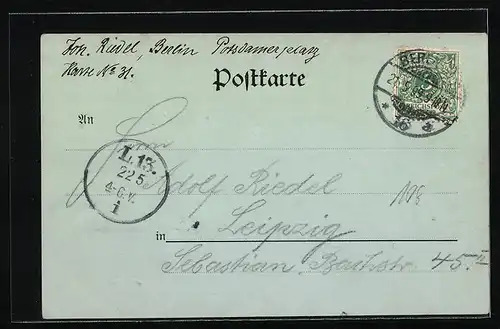 Joh. Riedel, Berlin Potsdamerplatz
Karte No 31.
Postkarte
An
Herrn
Adolf Riedel
in Leipzig
Sebastian Bachstr 45. II
L.13.
22 5
4-6.V.
1
BERLIN
198